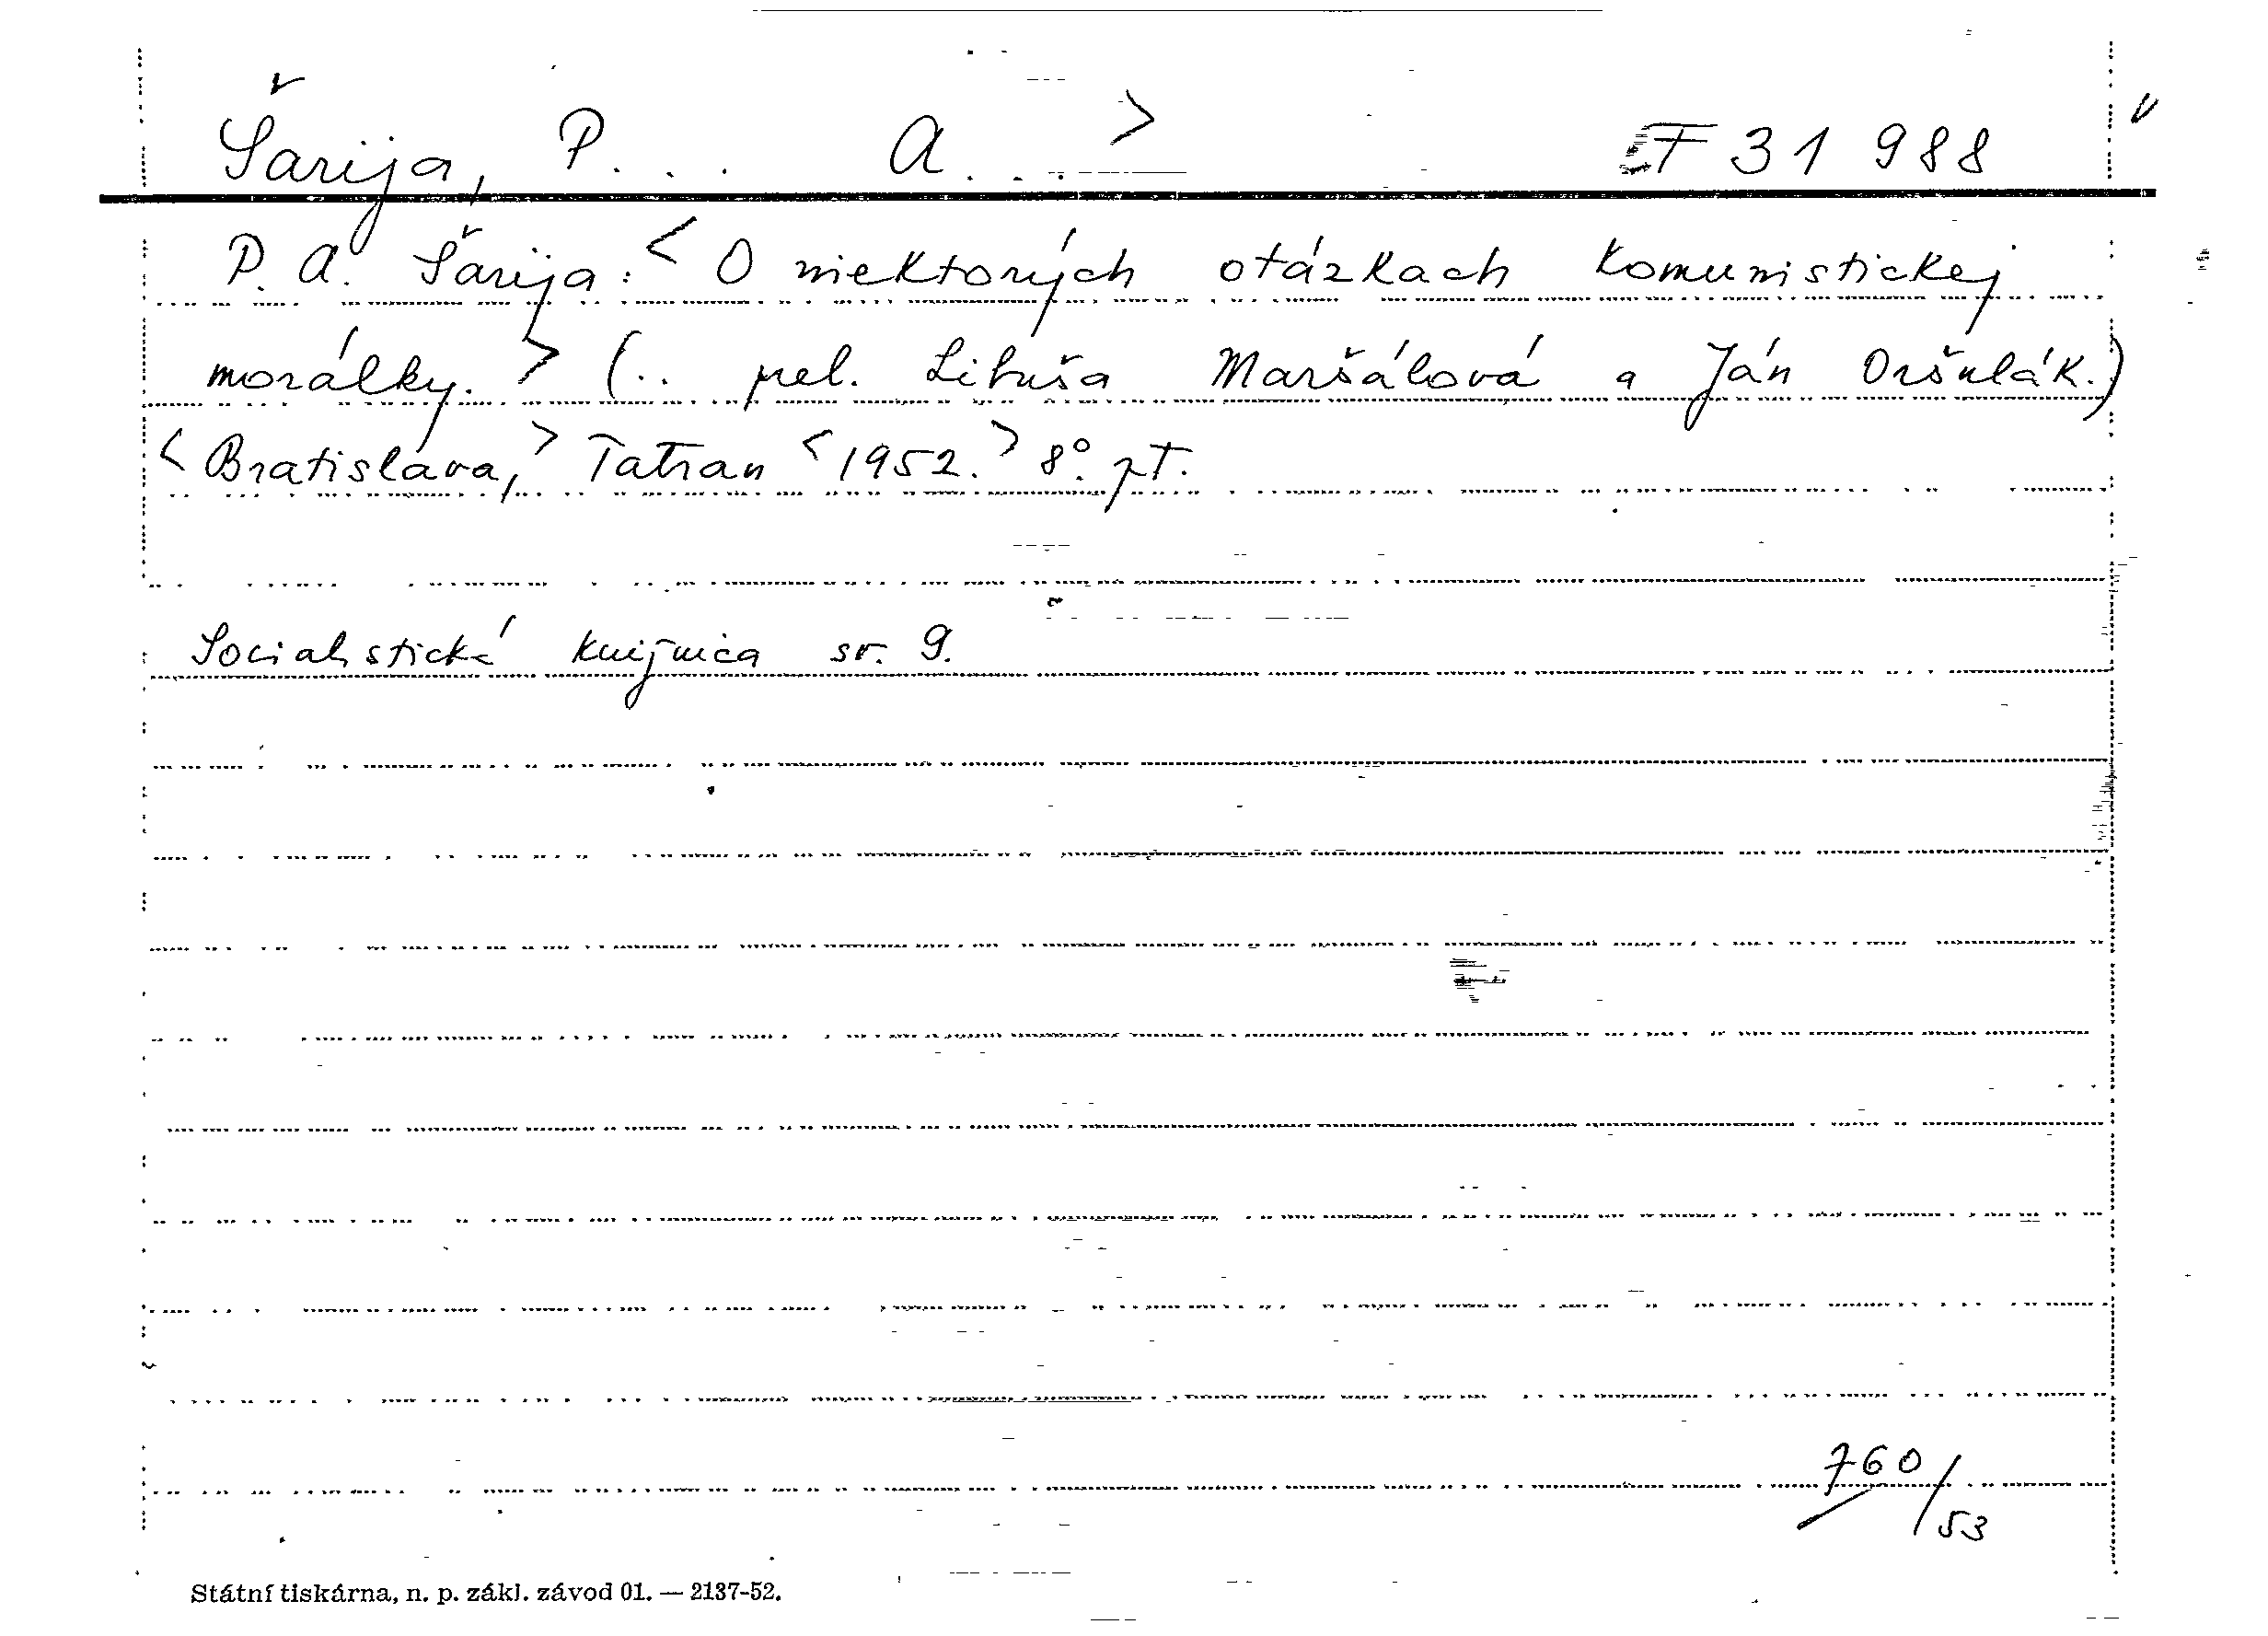 Šarija, P... A...> F 31 988
P. A. Šarija: <O niektorých otázkach komunistickej
morálky.> (.. prel. Libuša Maršálová a Ján Oršulák.)
<Bratislava,> Tatran <1952.> 8°. pt.
Socialistická knižnica sv. 9.
760/53
Státní tiskárna, n. p. zákl. závod 01. — 2137-52.